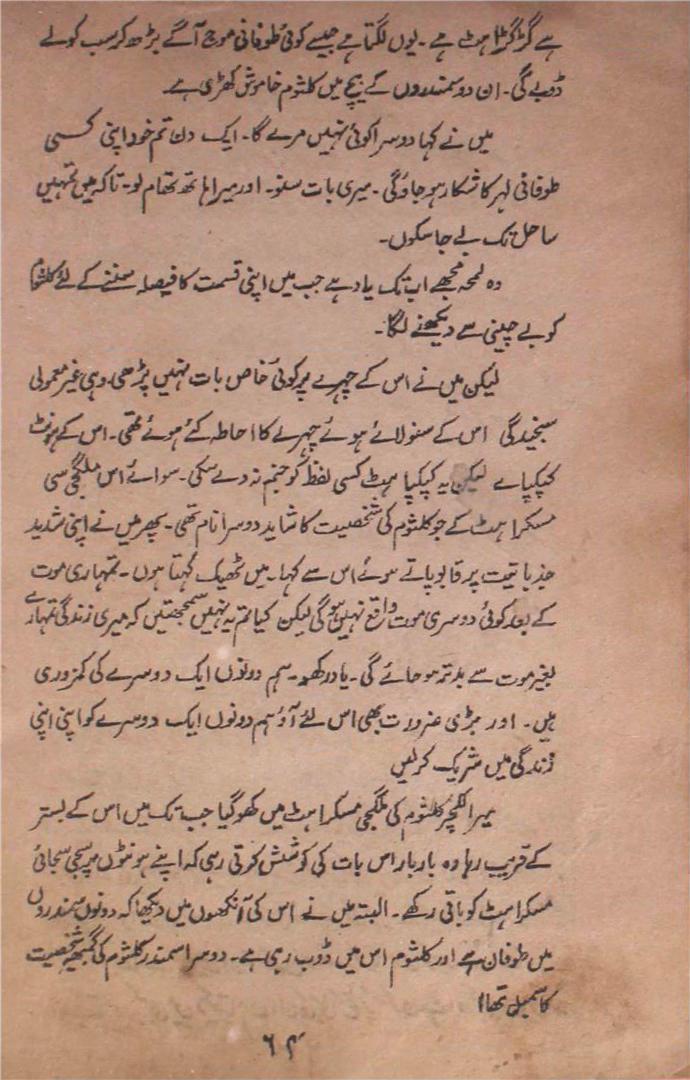 ہے گڑگڑاہٹ ہے۔ یوں لگتا ہے جیسے کوئی طوفانی موج آگے بڑھ کر سب کو لے
ڈوبے گی۔ ان دو سمندروں کے بیچ میں کلثوم خاموش کھڑی ہے۔
میں نے کہا دوسرا کوئی نہیں مرے گا۔ ایک دن تم خود اپنی کسی
طوفانی لہر کا شکار ہو جاؤ گی۔ میری بات سنو۔ اور میرا ہاتھ تھام لو۔ تاکہ میں تمہیں
ساحل تک لے جا سکوں۔
وہ لمحہ مجھے اب تک یاد ہے جب میں اپنی قسمت کا فیصلہ سننے کے لئے کلثوم
کو بے چینی سے دیکھنے لگا۔
لیکن میں نے اس کے چہرے پر کوئی خاص بات نہیں پڑھی وہی غیر معمولی
سنجیدگی اس کے سنولائے ہوئے چہرے کا احاطہ کئے ہوئے تھی۔ اس کے ہونٹ
کپکپائے لیکن یہ کپکپاہٹ کسی لفظ کو جنم نہ دے سکی۔ سوائے اس ملگجی سی
مسکراہٹ کے جو کلثوم کی شخصیت کا شاید دوسرا نام تھی۔ پھر میں نے اپنی شدید
جذباتیت پر قابو پاتے ہوئے اس سے کہا۔ میں ٹھیک کہتا ہوں۔ تمہاری موت
کے بعد کوئی دوسری موت واقع نہیں ہوگی لیکن کیا تم یہ نہیں سمجھتیں کہ میری زندگی تمہارے
بغیر موت سے بدتر ہو جائے گی۔ یاد رکھو۔ ہم دونوں ایک دوسرے کی کمزوری
ہیں۔ اور بڑی ضرورت بھی اس لئے آؤ ہم دونوں ایک دوسرے کو اپنی اپنی
زندگی میں شریک کر لیں
میرا لکچر کلثوم کی ملگجی مسکراہٹ میں کھو گیا جب تک میں اس کے بستر
کے قریب رہا وہ بار بار اس بات کی کوشش کرتی رہی کہ اپنے ہونٹوں پر سجی سجائی
مسکراہٹ کو باقی رکھے۔ البتہ میں نے اس کی آنکھوں میں دیکھا کہ دونوں سمندروں
میں طوفان ہے اور کلثوم اس میں ڈوب رہی ہے۔ دوسرا سمندر کلثوم کی گمبھیر شخصیت
کا سمبل تھا!
۶۴